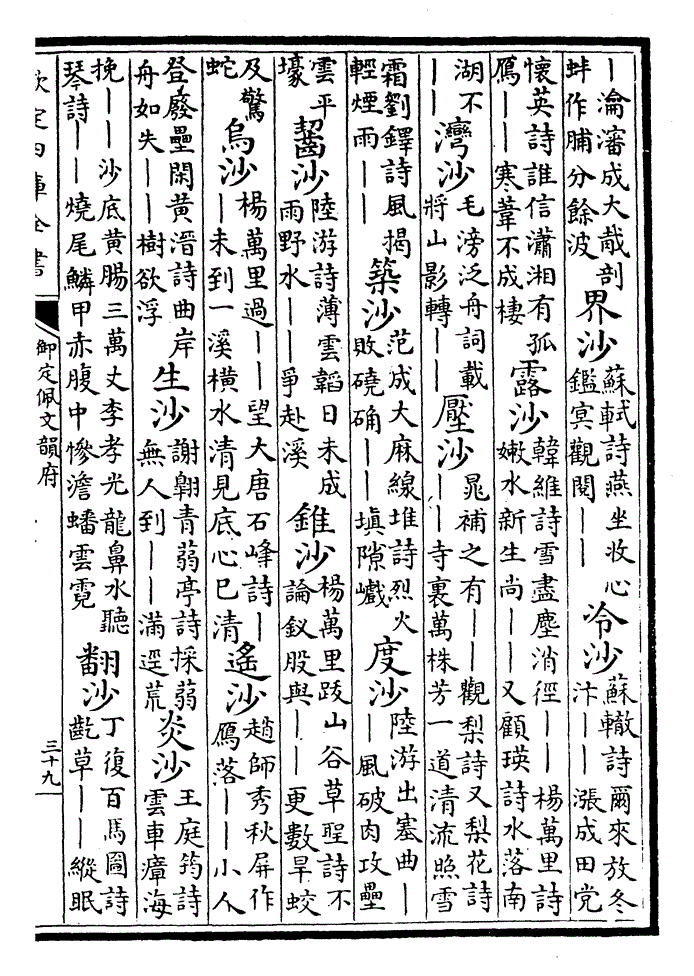 ｜瀹瀋成大胾剖蚌作脯分餘波界沙蘇軾詩燕坐收心鑑冥觀閱｜｜冷沙蘇轍詩爾來放冬汴｜｜漲成田党
懷英詩誰信瀟湘有孤鴈｜｜寒葦不成棲露沙韓維詩雪盡塵消徑｜｜楊萬里詩嫩水新生尚｜｜又顧瑛詩水落南
湖不｜｜灣沙毛滂泛舟詞載將山影轉｜｜壓沙晁補之有｜｜觀梨詩又梨花詩｜｜寺裏萬株芳一道清流照雪
霜劉鐸詩風揭輕煙雨｜｜築沙范成大麻線堆詩烈火敗磽确｜｜塡隙巇度沙陸游出塞曲｜｜風破肉攻壘
雲平壕齧沙陸游詩薄雲韜日未成雨野水｜｜爭赴溪錐沙楊萬里跋山谷草聖詩不論釵股與｜｜更數旱蛟
及驚蛇烏沙楊萬里過｜｜望大唐石峰詩｜｜未到一溪橫水清見底心已清遙沙趙師秀秋屏作鴈落｜｜小人
登廢壘閑黃溍詩曲岸舟如失｜｜樹欲浮生沙謝翺青蒻亭詩採蒻無人到｜｜滿逕荒炎沙王庭筠詩雲車瘴海
挽｜｜沙底黃腸三萬丈李孝光龍鼻水聽琴詩｜｜燒尾鱗甲赤腹中慘澹蟠雲霓翻沙丁復百馬圖詩齕草｜｜縱眠
欽定四庫全書
御定佩文韻府
三十九